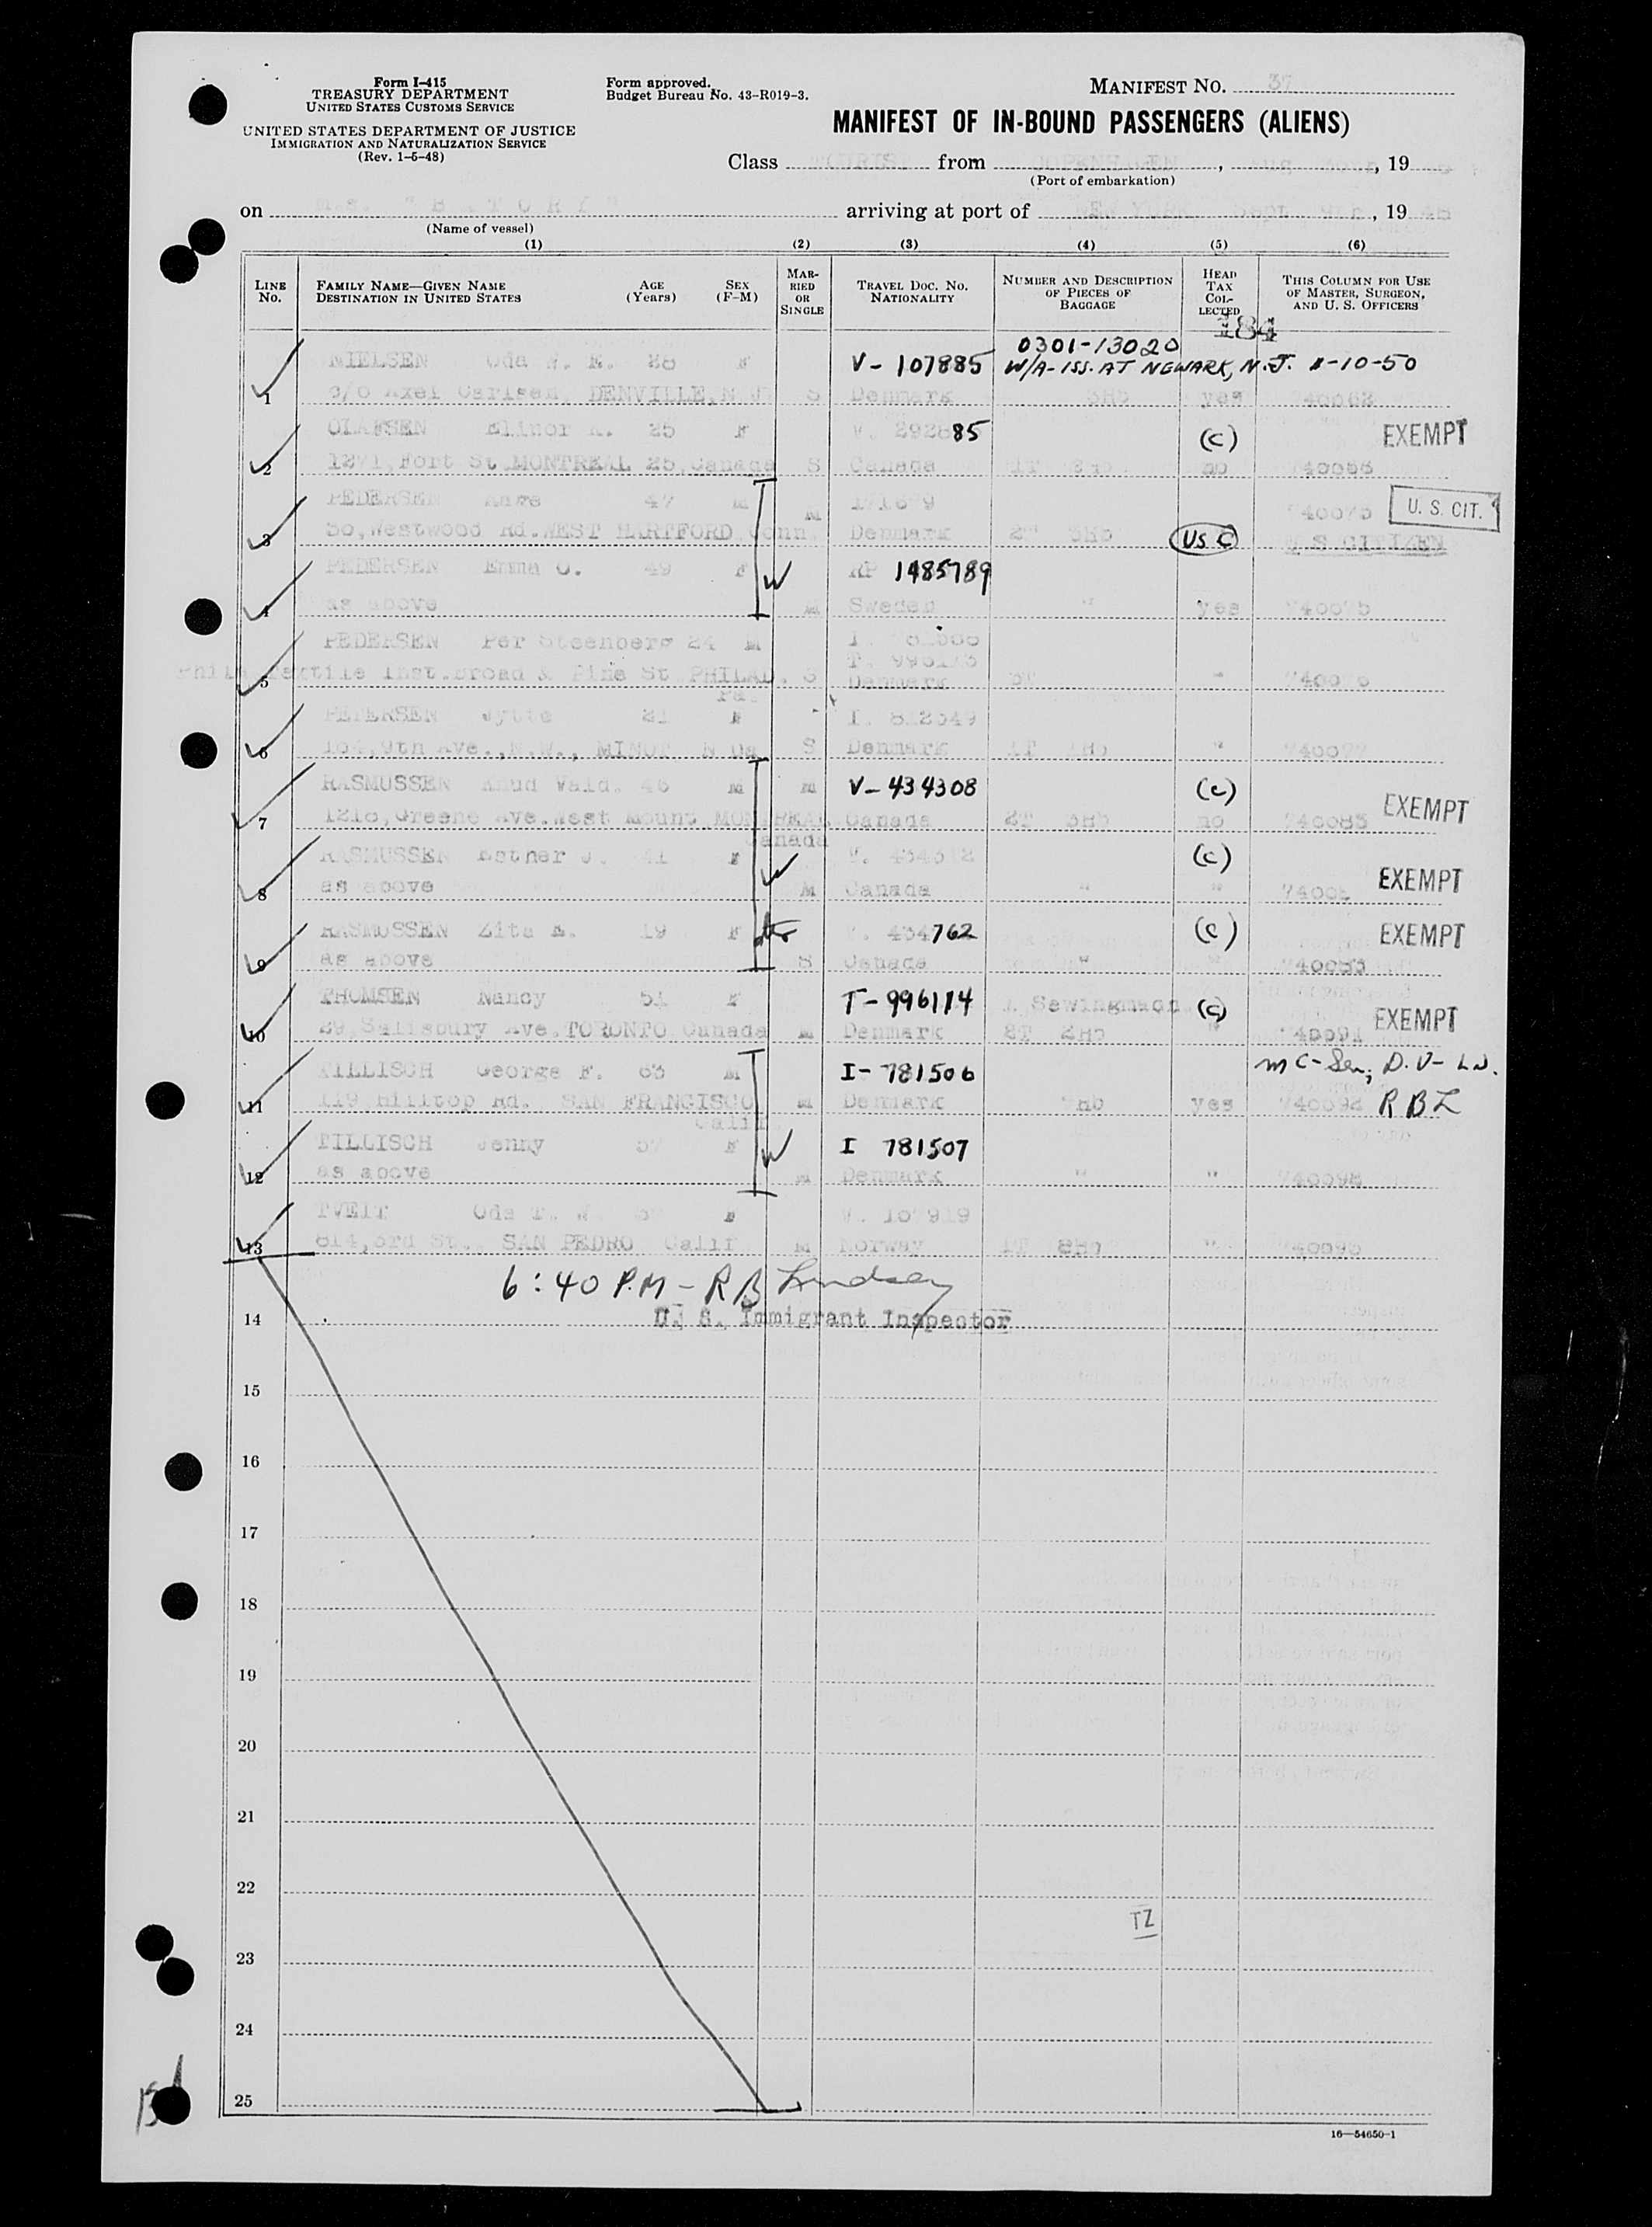 Form I-415
TREASURY DEPARTMENT
UNITED STATES CUSTOMS SERVICE
UNITED STATES DEPARTMENT OF JUSTICE
IMMIGRATION AND NATURALIZATION SERVICE
(Rev. 1-5-48)
Form approved.
Budget Bureau No. 43-R019-3.
MANIFEST NO. 37
MANIFEST OF IN-BOUND PASSENGERS (ALIENS)
Class TOURIST from COPENHAGEN, , 19
(Port of embarkation)
on m.s. "BATORY" arriving at port of NEW YORK Sept 9th, 1948
(Name of vessel)
(1) (2) (3) (4) (5) (6)
LINE No.
FAMILY NAME—GIVEN NAME DESTINATION IN UNITED STATES
AGE (Years)
SEX (F-M)
MARRIED OR SINGLE
TRAVEL DOC. NO. NATIONALITY
NUMBER AND DESCRIPTION OF PIECES OF BAGGAGE
HEAD TAX COLLECTED
THIS COLUMN FOR USE OF MASTER, SURGEON, AND U. S. OFFICERS
184
0301-13020
NIELSEN Oda 28 F V-107885 W/A-ISS. AT NEWARK, N.J. -10-50
1 c/o Axel Carlsen, DENVILLE, N J S Denmark 3Hb yes
OLAFSEN Elinor 25 F V. 292885 (C) EXEMPT
2 1271, Fort St MONTREAL 25, Canada S Canada no
PEDERSEN Aage 47 M U. S. CIT.
3 50, Westwood Rd. WEST HARTFORD Conn. M Denmark 2T 3Hb US C U S CITIZEN
PEDERSEN Emma O. 49 F W RP 1485789
4 as above M Sweden " yes 740075
PEDERSEN Per Steenberg 24 M
T. 996173
5 Phila Textile Inst. Broad & Pine St PHILAD. Pa. S Denmark "
PETERSEN Jytte 21 F I. 812549
6 164, 9th Ave., N.W., MINOT N Da S Denmark 1T 1Hb "
RASMUSSEN Knud Vald. 46 M M V-434308 (C) EXEMPT
7 1218, Greene Ave. West Mount MONTREAL Canada Canada 2T 3Hb no 740083
RASMUSSEN Esther J. 41 F W (C) EXEMPT
8 as above M Canada " "
RASMUSSEN Zita E. 19 F dtr V. 434762 (C) EXEMPT
9 as above S Canada " " 740083
THOMSEN Nancy 51 F T-996114 1 Sewingmach. (C) EXEMPT
10 29 Salisbury Ave. TORONTO Canada M Denmark 2Hb " 740091
TILLISCH George F. 63 M I-781506 MC-Sen; D.V-
11 119 Hilltop Rd. SAN FRANCISCO Calif. M Denmark 7Hb yes RBL
TILLISCH Jenny 57 F W I 781507
12 as above M Denmark " "
TVEIT Oda T. F
13 814, 3rd St. SAN PEDRO Calif M Norway "
6:40 P.M - R B Lindsay
14 U. S. Immigrant Inspector
15
16
17
18
19
20
21
22
TZ
23
24
25
16—54650-1